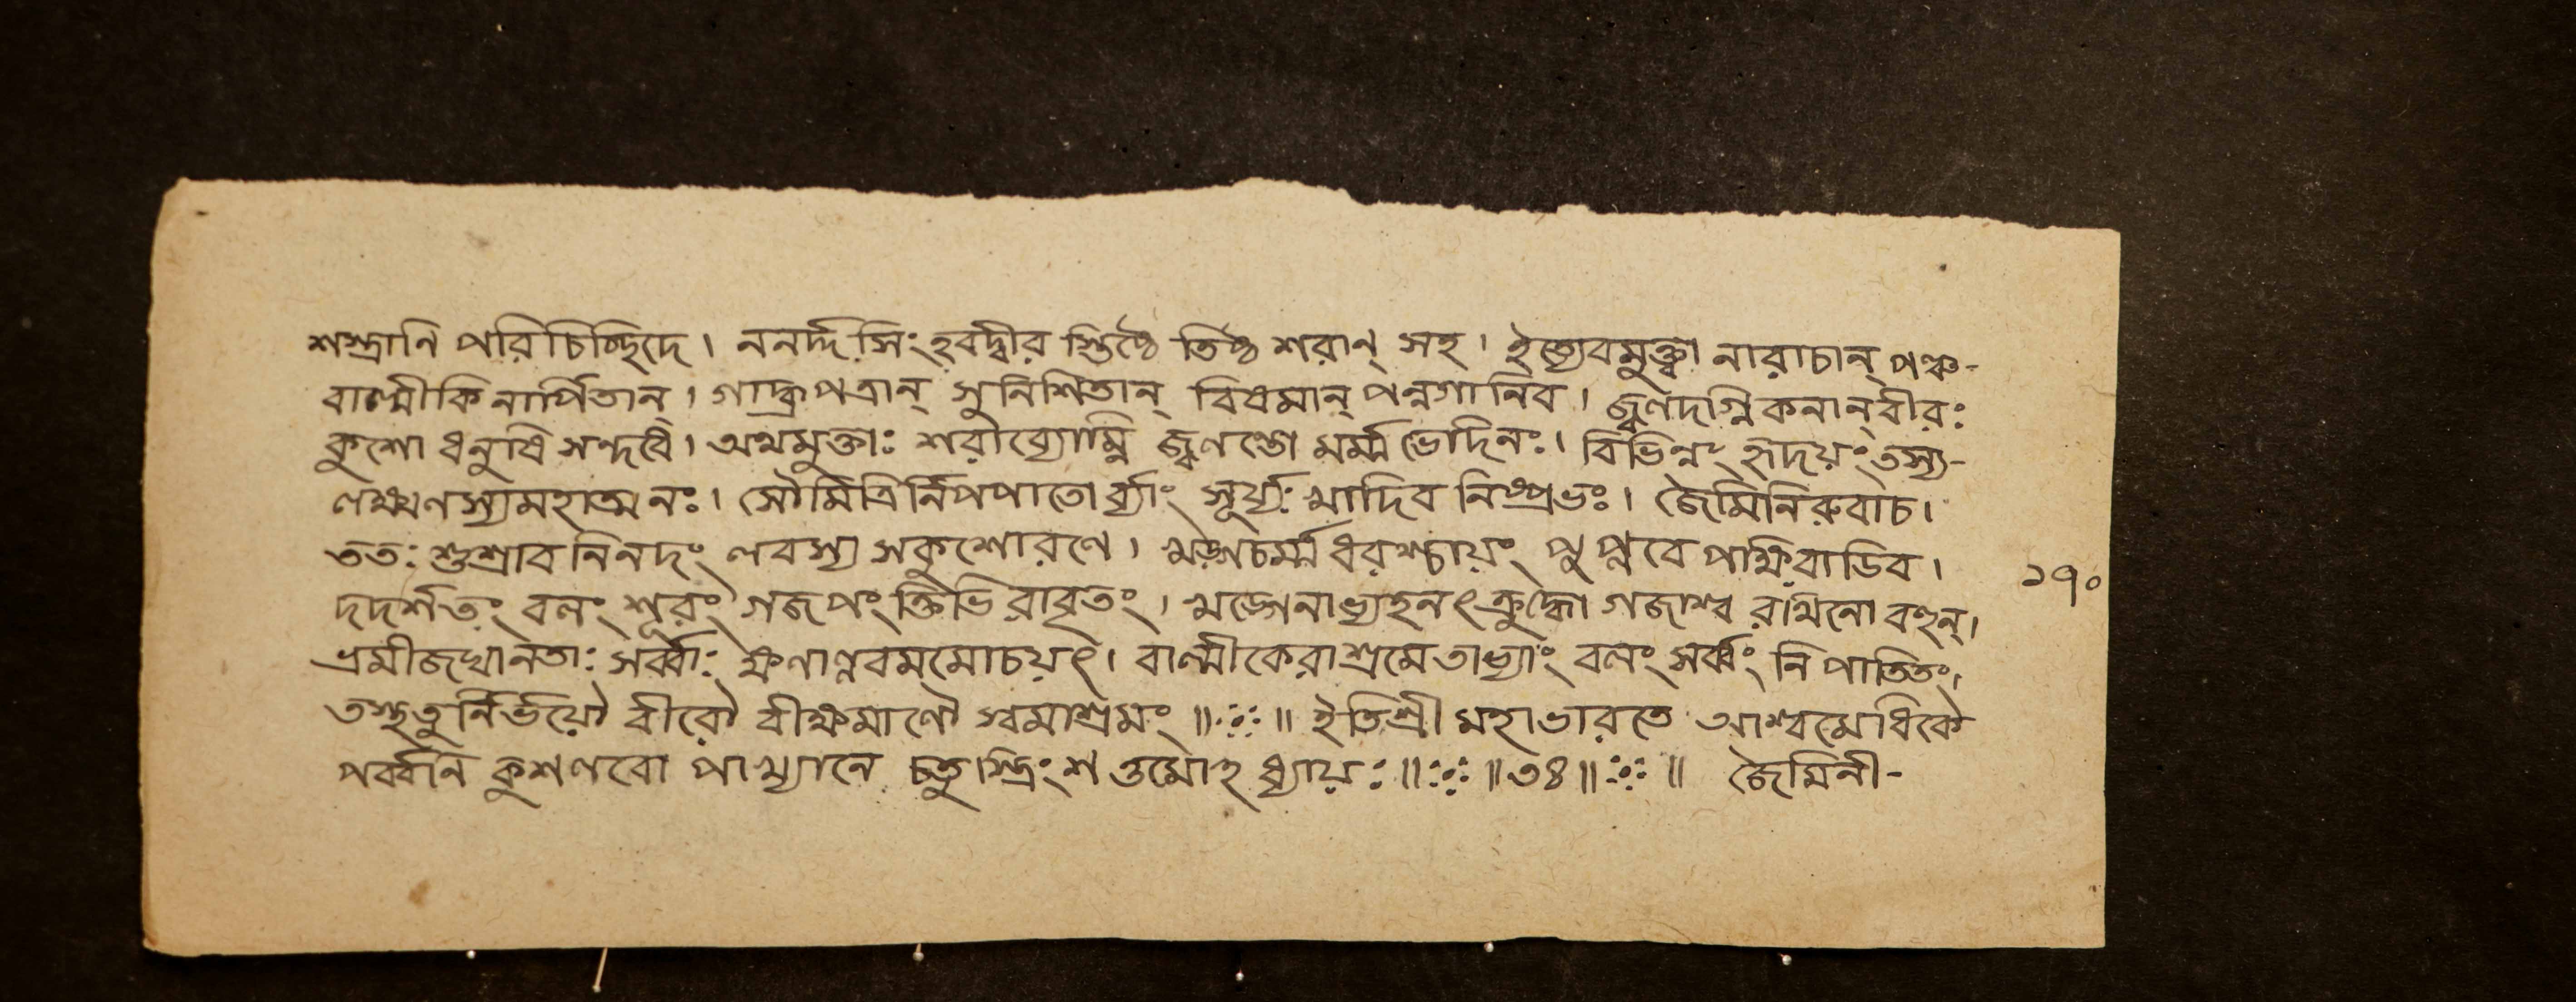 শস্ত্রানি পরিচিচ্ছিদে। ননর্দ্দ সিংহবদ্বীর স্তিষ্ঠৈ তিষ্ঠ শরান্ সহ। ইত্যেবমুক্ত্বা নারাচান্ পঞ্চ-
বাল্মীকিনার্পিতান্। গার্দ্ধ্রপত্রান্ সুনিশিতান্ বিষমান্ পন্নগানিব। জ্বলদগ্নিকনান্ বীরঃ
কুশো ধনুষি সন্দধে। অথমুক্তাঃ শরাব্যোম্নি জ্বলন্তো মর্ম্মভেদিনঃ। বিভিন্নং হৃদয়ং তস্য-
লক্ষ্মণস্যমহাত্মনঃ। সৌমিত্রির্নিপপাতোর্ব্যাং সূর্য্যঃ খাদিব নিঃপ্রভঃ। জৈমিনিরুবাচ।
ততঃ শুশ্রাব নিনদং লবস্য সকুশোরণে। খড়্গচর্ম্মধরশ্চায়ং পুপ্লবে পক্ষিরাডিব।
দদর্শতং বলং শূরং গজপংক্তিভিরাবৃতং। খড়্গেনাভ্যহনৎ ক্রুদ্ধো গজাশ্ব রথিনো বহূন্।
ভ্রমীজখানতাঃ সর্ব্বাঃ ক্ষণাল্লবমমোচয়ৎ। বাল্মীকেরাশ্রমে তাভ্যাং বলং সর্ব্বং নিপাতিতং।
তস্থতুর্নির্ভয়ৌ বীরৌ বীক্ষমাণৌ স্বমাশ্রমং॥ ॥ ইতিশ্রী মহাভারতে আশ্বমেধিকে
পর্ব্বনি কুশলবো পাখ্যানে চতুস্ত্রিংশত্তমোঽধ্যায়ঃ॥ ॥৩৪॥ ॥ জৈমিনী-
১৭০